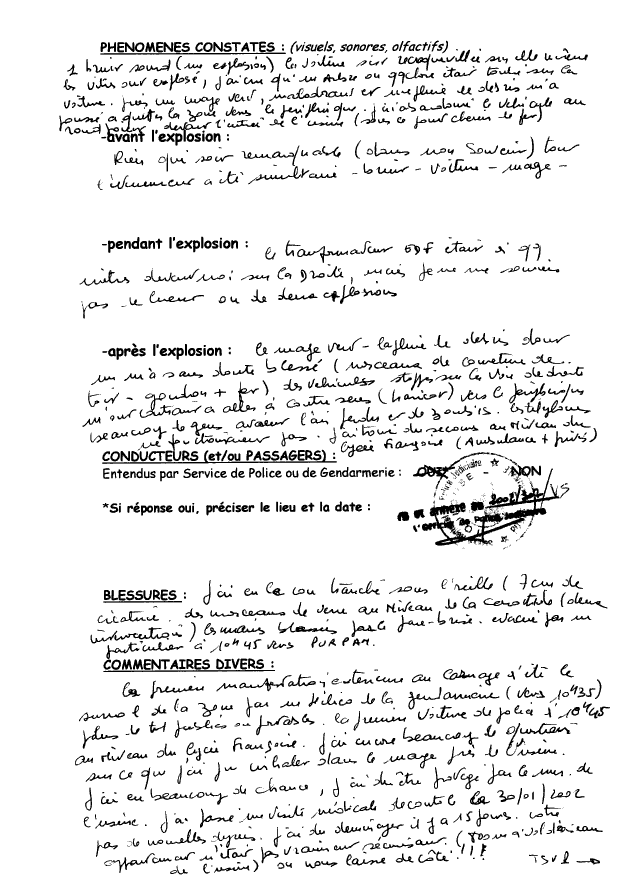 PHENOMENES CONSTATES : (visuels, sonores, olfactifs)
1 bruit sourd (une explosion) la voiture s'est recroquevillée sur elle même
les vitres ont explosé, j'ai cru qu'un Arbre ou qqchose était tombé sur la
voiture. puis un nuage vert, malodorant et une pluie de débris m'a
poussé à quitter la zone vers le periphérique. j'ai abandonné le véhicule au
rond point devant l'entrée de l'usine (sous ce pont chemin de fer)
-avant l'explosion :
Rien qui soit remarquable (dans mon souvenir) tout
l'évènement a été simultané - bruit - voiture - nuage -
-pendant l'explosion : le transformateur EDF était à qq
mètres devant moi sur la Droite, mais je ne me souviens
pas de lueur ou de deux explosions
-après l'explosion : le nuage vert - la pluie de débris dont
un m'a sans doute blessé (morceaux de
- goudron + fer) des véhicules stoppés sur la voie de droite
m'ont contraint à aller à contre sens (trottoir) vers le périphérique
beaucoup de gens avaient l'air perdus et de zombis. les téléphones
ne fonctionnaient pas. j'ai trouvé du secours au Niveau du
lycée Française (Ambulance + )
CONDUCTEURS (et/ou PASSAGERS) :
Entendus par Service de Police ou de Gendarmerie : OUI* NON
*Si réponse oui, préciser le lieu et la date :
Police Judiciaire
annexé au 2002/302/VS
l'Officier de Police Judiciaire
BLESSURES : j'ai eu le cou tranché sous l'oreille (7 cm de
cicatrice. des morceaux de verre au Niveau de la carotide (deux
interventions) les mains blessées par le pare-brise. évacué par un
particulier à 10H45 vers PURPAN.
COMMENTAIRES DIVERS :
la première manifestation extérieure au carnage a été le
survol de la zone par un hélico de la gendarmerie (vers 10H35)
plus de tel publics ou portables. la première voiture de police à 10H45
au Niveau du lycée Française. j'ai encore beaucoup de questions
sur ce que j'ai pu inhaler dans le nuage près de l'usine.
j'ai eu beaucoup de chance, j'ai dû être protégé par le mur de
l'usine. j'ai passé une visite médicale de contrôle le 30/01/2002
pas de nouvelles depuis. j'ai dû déménager il y a 15 jours. notre
appartement n'était pas vraiment sécurisant. (700 m à vol d'oiseau
de l'usine) on nous laisse de côté !!! TSVP →